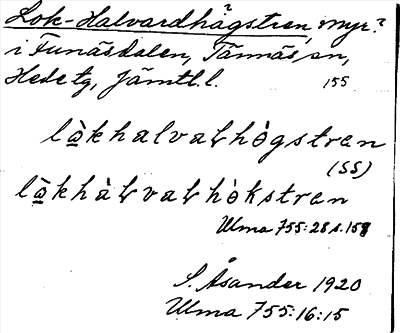 Lok-Halvardhågstren, myr?
i Funäsdalen, Tännäs sn,
Hede tg, Jämtl. l.
155
lòkhalvaɫhògstren
(SS)
lòkhàɫvaɫhòkstren
Ulma 755:28 s. 158
S. Åsander 1920
Ulma 755:16:15